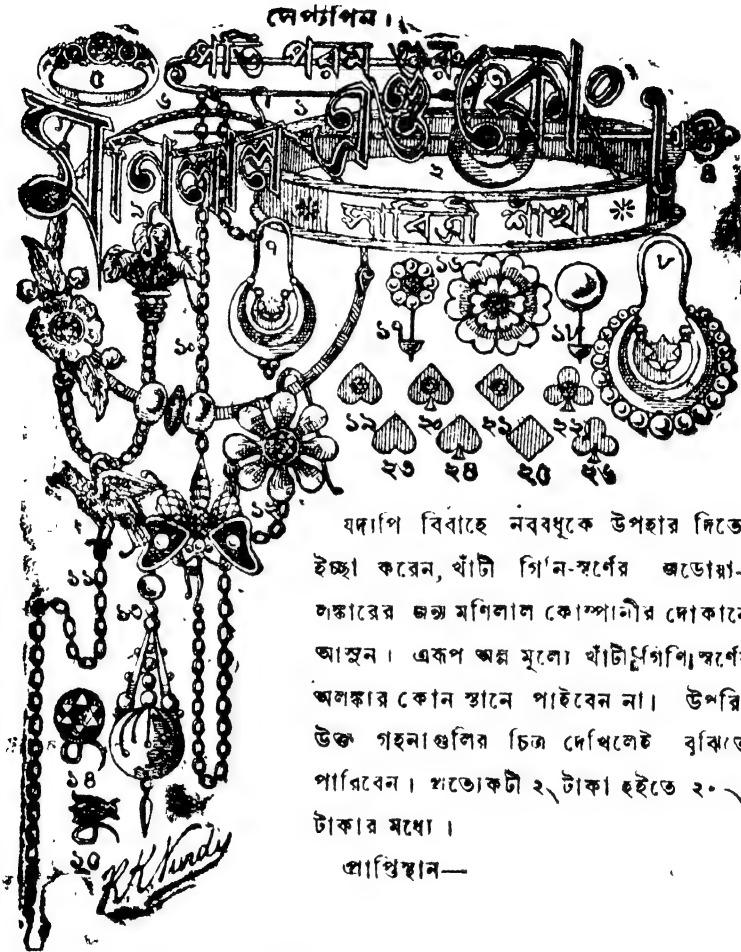 সেপ্টাপিন।
পতি পরম গুরু
মণিলাল এণ্ড কোং
সাবিত্রী শাঁখা
৫
৬
৯
২
৪
৭
৮
১০
১৬
১৭
১৮
১৯ ২০ ২১ ২২
২৩ ২৪ ২৫ ২৬
১২
১১
১৩
১৪
১৫
K.K. Nundy
যদ্যপি বিবাহে নববধূকে উপহার দিতে
ইচ্ছা করেন, খাঁটী গিনি-স্বর্ণের জড়োয়া-
লঙ্কারের জন্য মণিলাল কোম্পানীর দোকানে
আসুন। এরূপ অল্প মূল্যে খাঁটী গিণি স্বর্ণের
অলঙ্কার কোন স্থানে পাইবেন না। উপরি
উক্ত গহনাগুলির চিত্র দেখিলেই বুঝিতে
পারিবেন। প্রত্যেকটী ২৲ টাকা হইতে ২০৲
টাকার মধ্যে।
প্রাপ্তিস্থান—